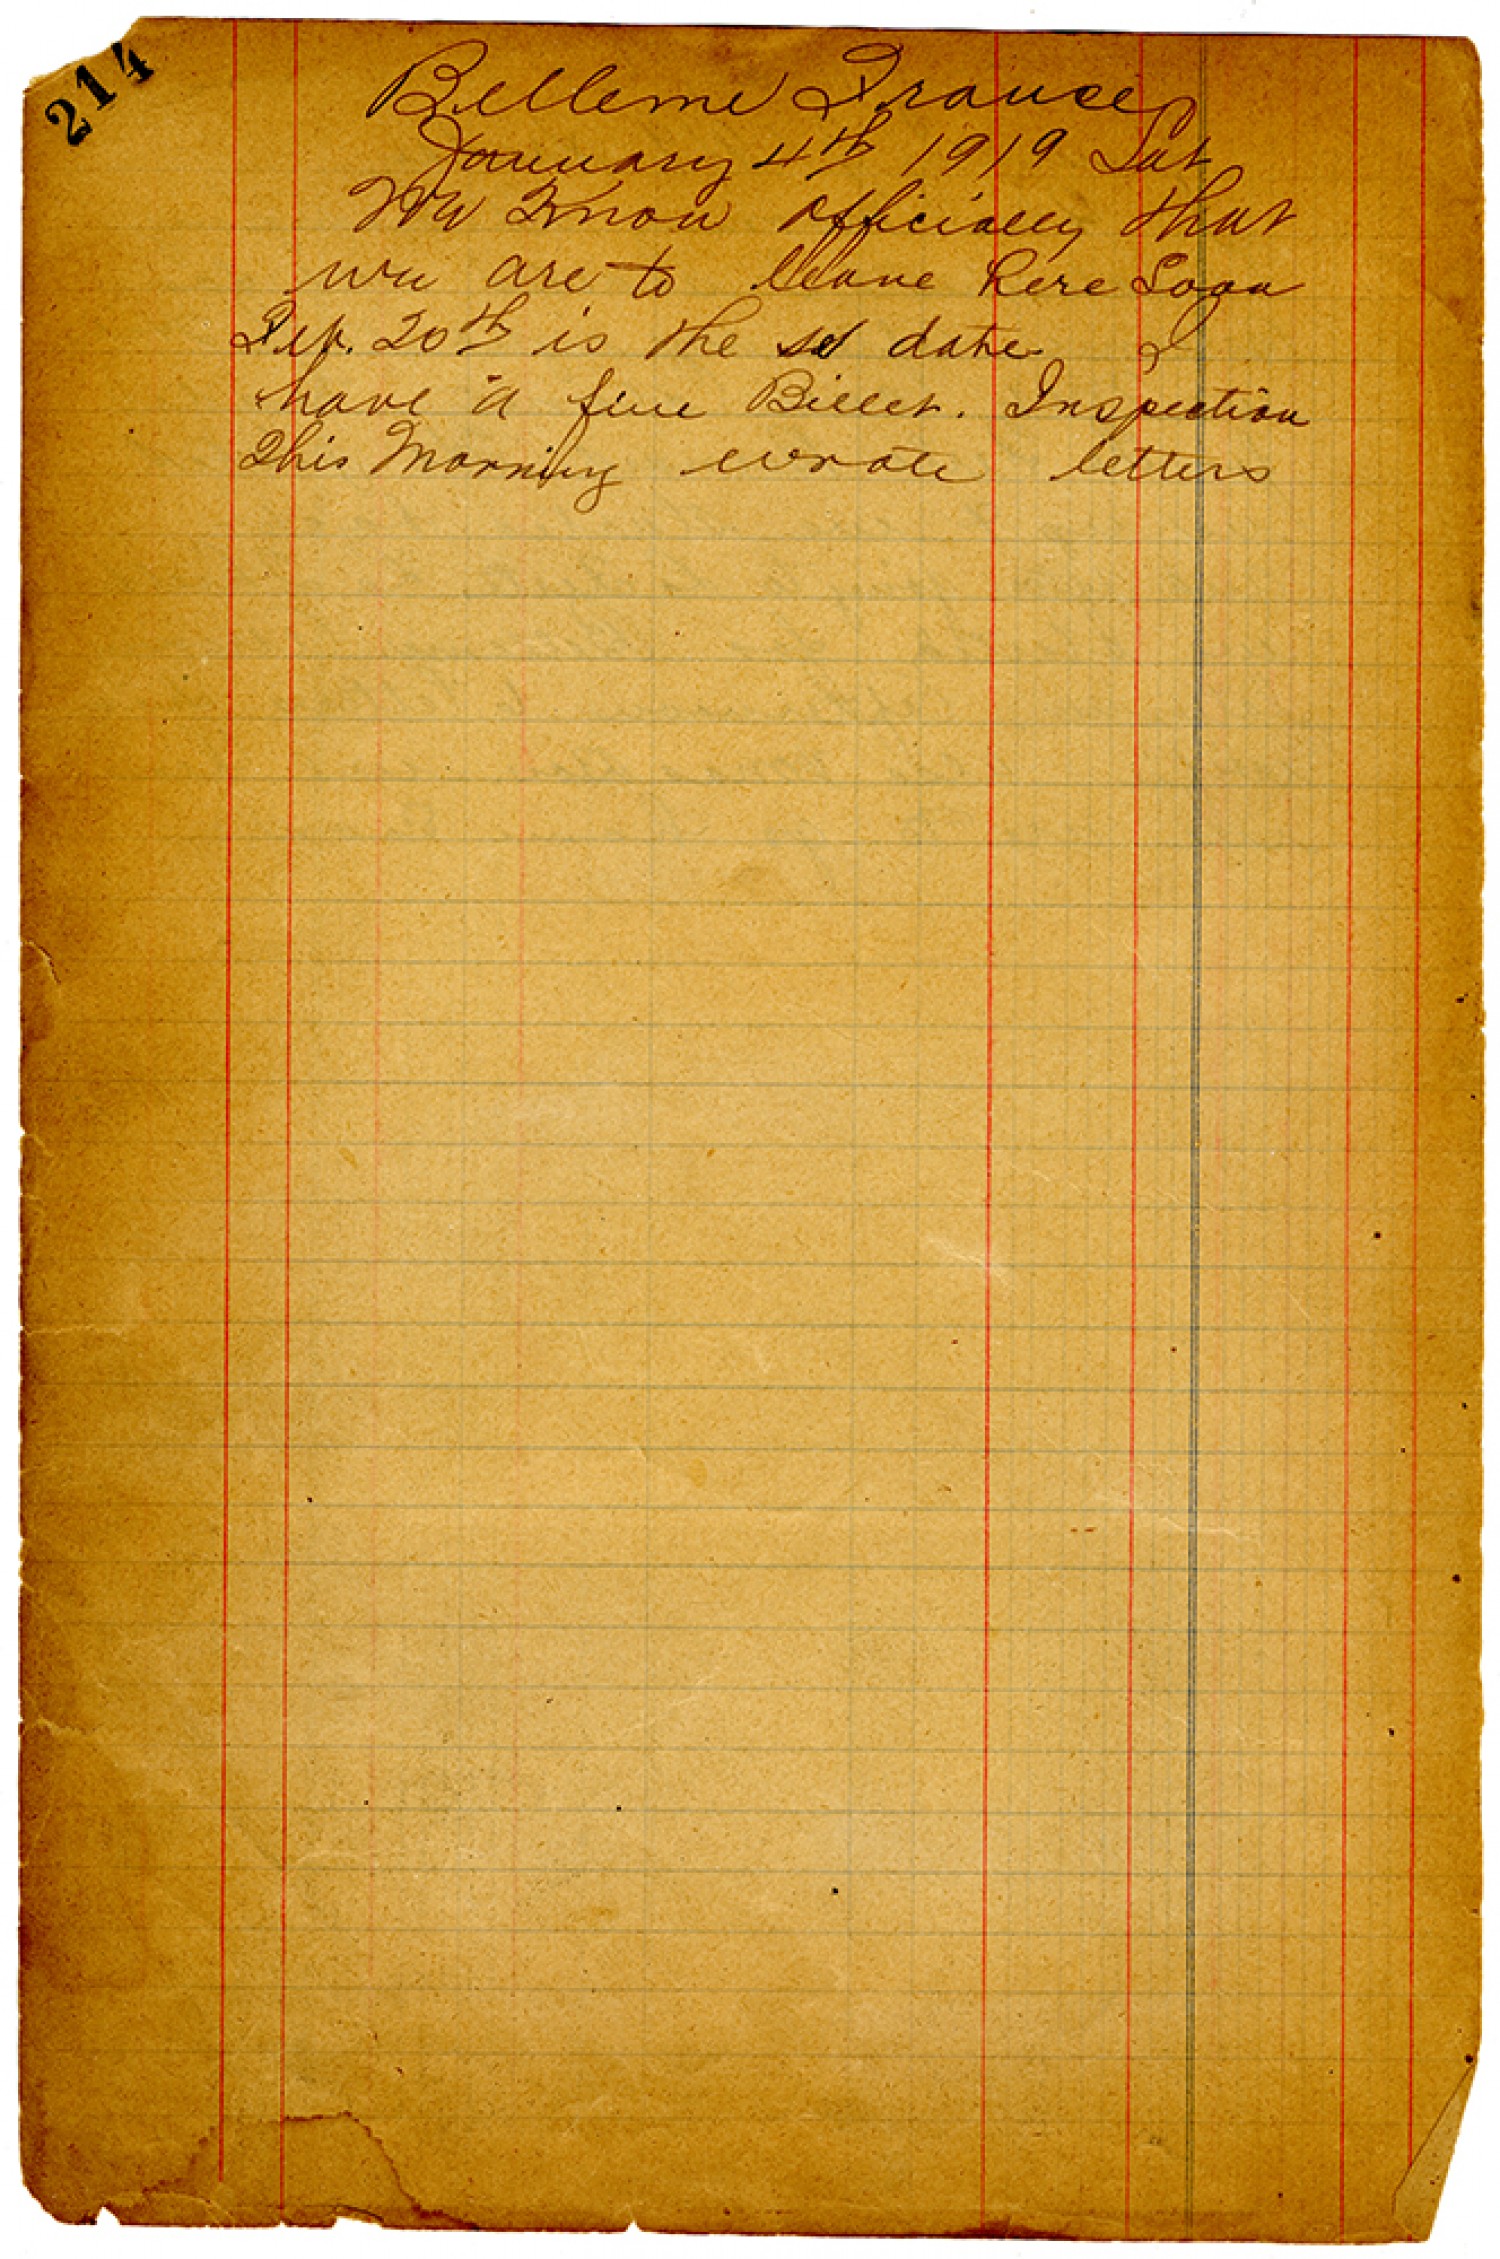 214
Belleme France
January 4th 1919 Sat
We Know officially that
we are to leave here Soon
Feb. 20th is the set date I
have a fine Billet. Inspection
This Morning wrote letters